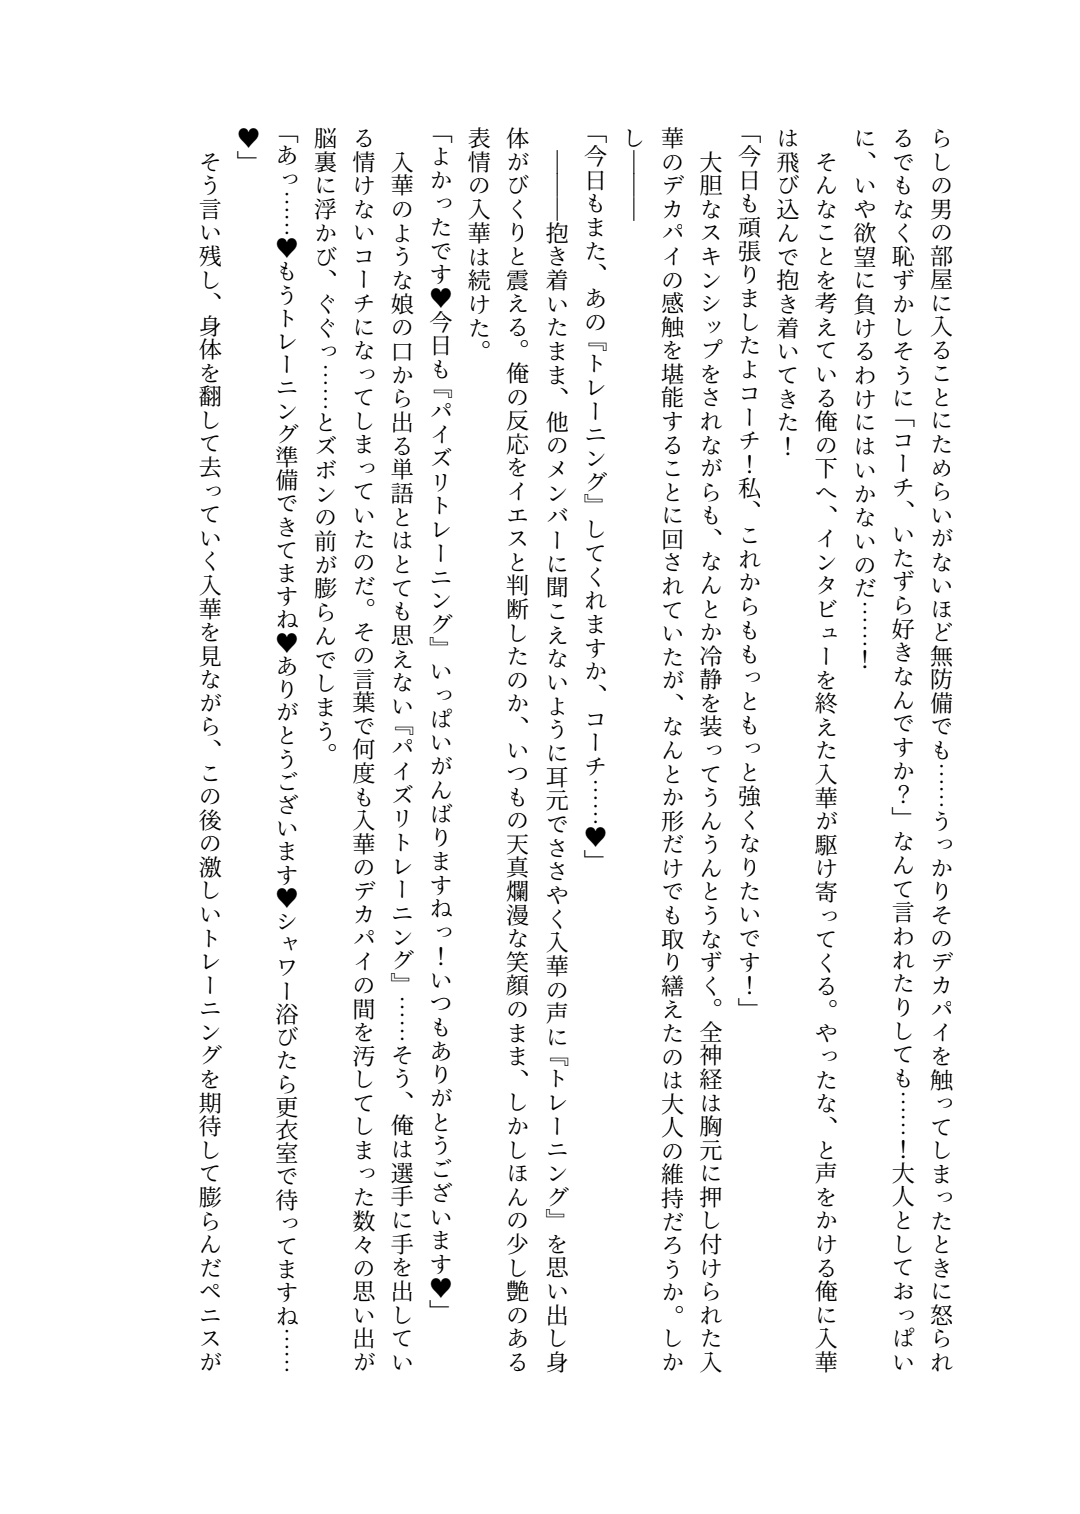 らしの男の部屋に入ることにためらいがないほど無防備でも……うっかりそのデカパイを触ってしまったときに怒られ
るでもなく恥ずかしそうに「コーチ、いたずら好きなんですか？」なんて言われたりしても……！大人としておっぱい
に、いや欲望に負けるわけにはいかないのだ……！
そんなことを考えている俺の下へ、インタビューを終えた入華が駆け寄ってくる。やったな、と声をかける俺に入華
は飛び込んで抱き着いてきた！
「今日も頑張りましたよコーチ！私、これからももっともっと強くなりたいです！」
大胆なスキンシップをされながらも、なんとか冷静を装ってうんうんとうなずく。全神経は胸元に押し付けられた入
華のデカパイの感触を堪能することに回されていたが、なんとか形だけでも取り繕えたのは大人の維持だろうか。しか
し――――
「今日もまた、あの『トレーニング』してくれますか、コーチ……♥」
――――抱き着いたまま、他のメンバーに聞こえないように耳元でささやく入華の声に『トレーニング』を思い出し身
体がびくりと震える。俺の反応をイエスと判断したのか、いつもの天真爛漫な笑顔のまま、しかしほんの少し艶のある
表情の入華は続けた。
「よかったです♥今日も『パイズリトレーニング』いっぱいがんばりますねっ！いつもありがとうございます♥」
入華のような娘の口から出る単語とはとても思えない『パイズリトレーニング』……そう、俺は選手に手を出してい
る情けないコーチになってしまっていたのだ。その言葉で何度も入華のデカパイの間を汚してしまった数々の思い出が
脳裏に浮かび、ぐぐっ……とズボンの前が膨らんでしまう。
「あっ……♥もうトレーニング準備できてますね♥ありがとうございます♥シャワー浴びたら更衣室で待ってますね……
♥」
そう言い残し、身体を翻して去っていく入華を見ながら、この後の激しいトレーニングを期待して膨らんだペニスが